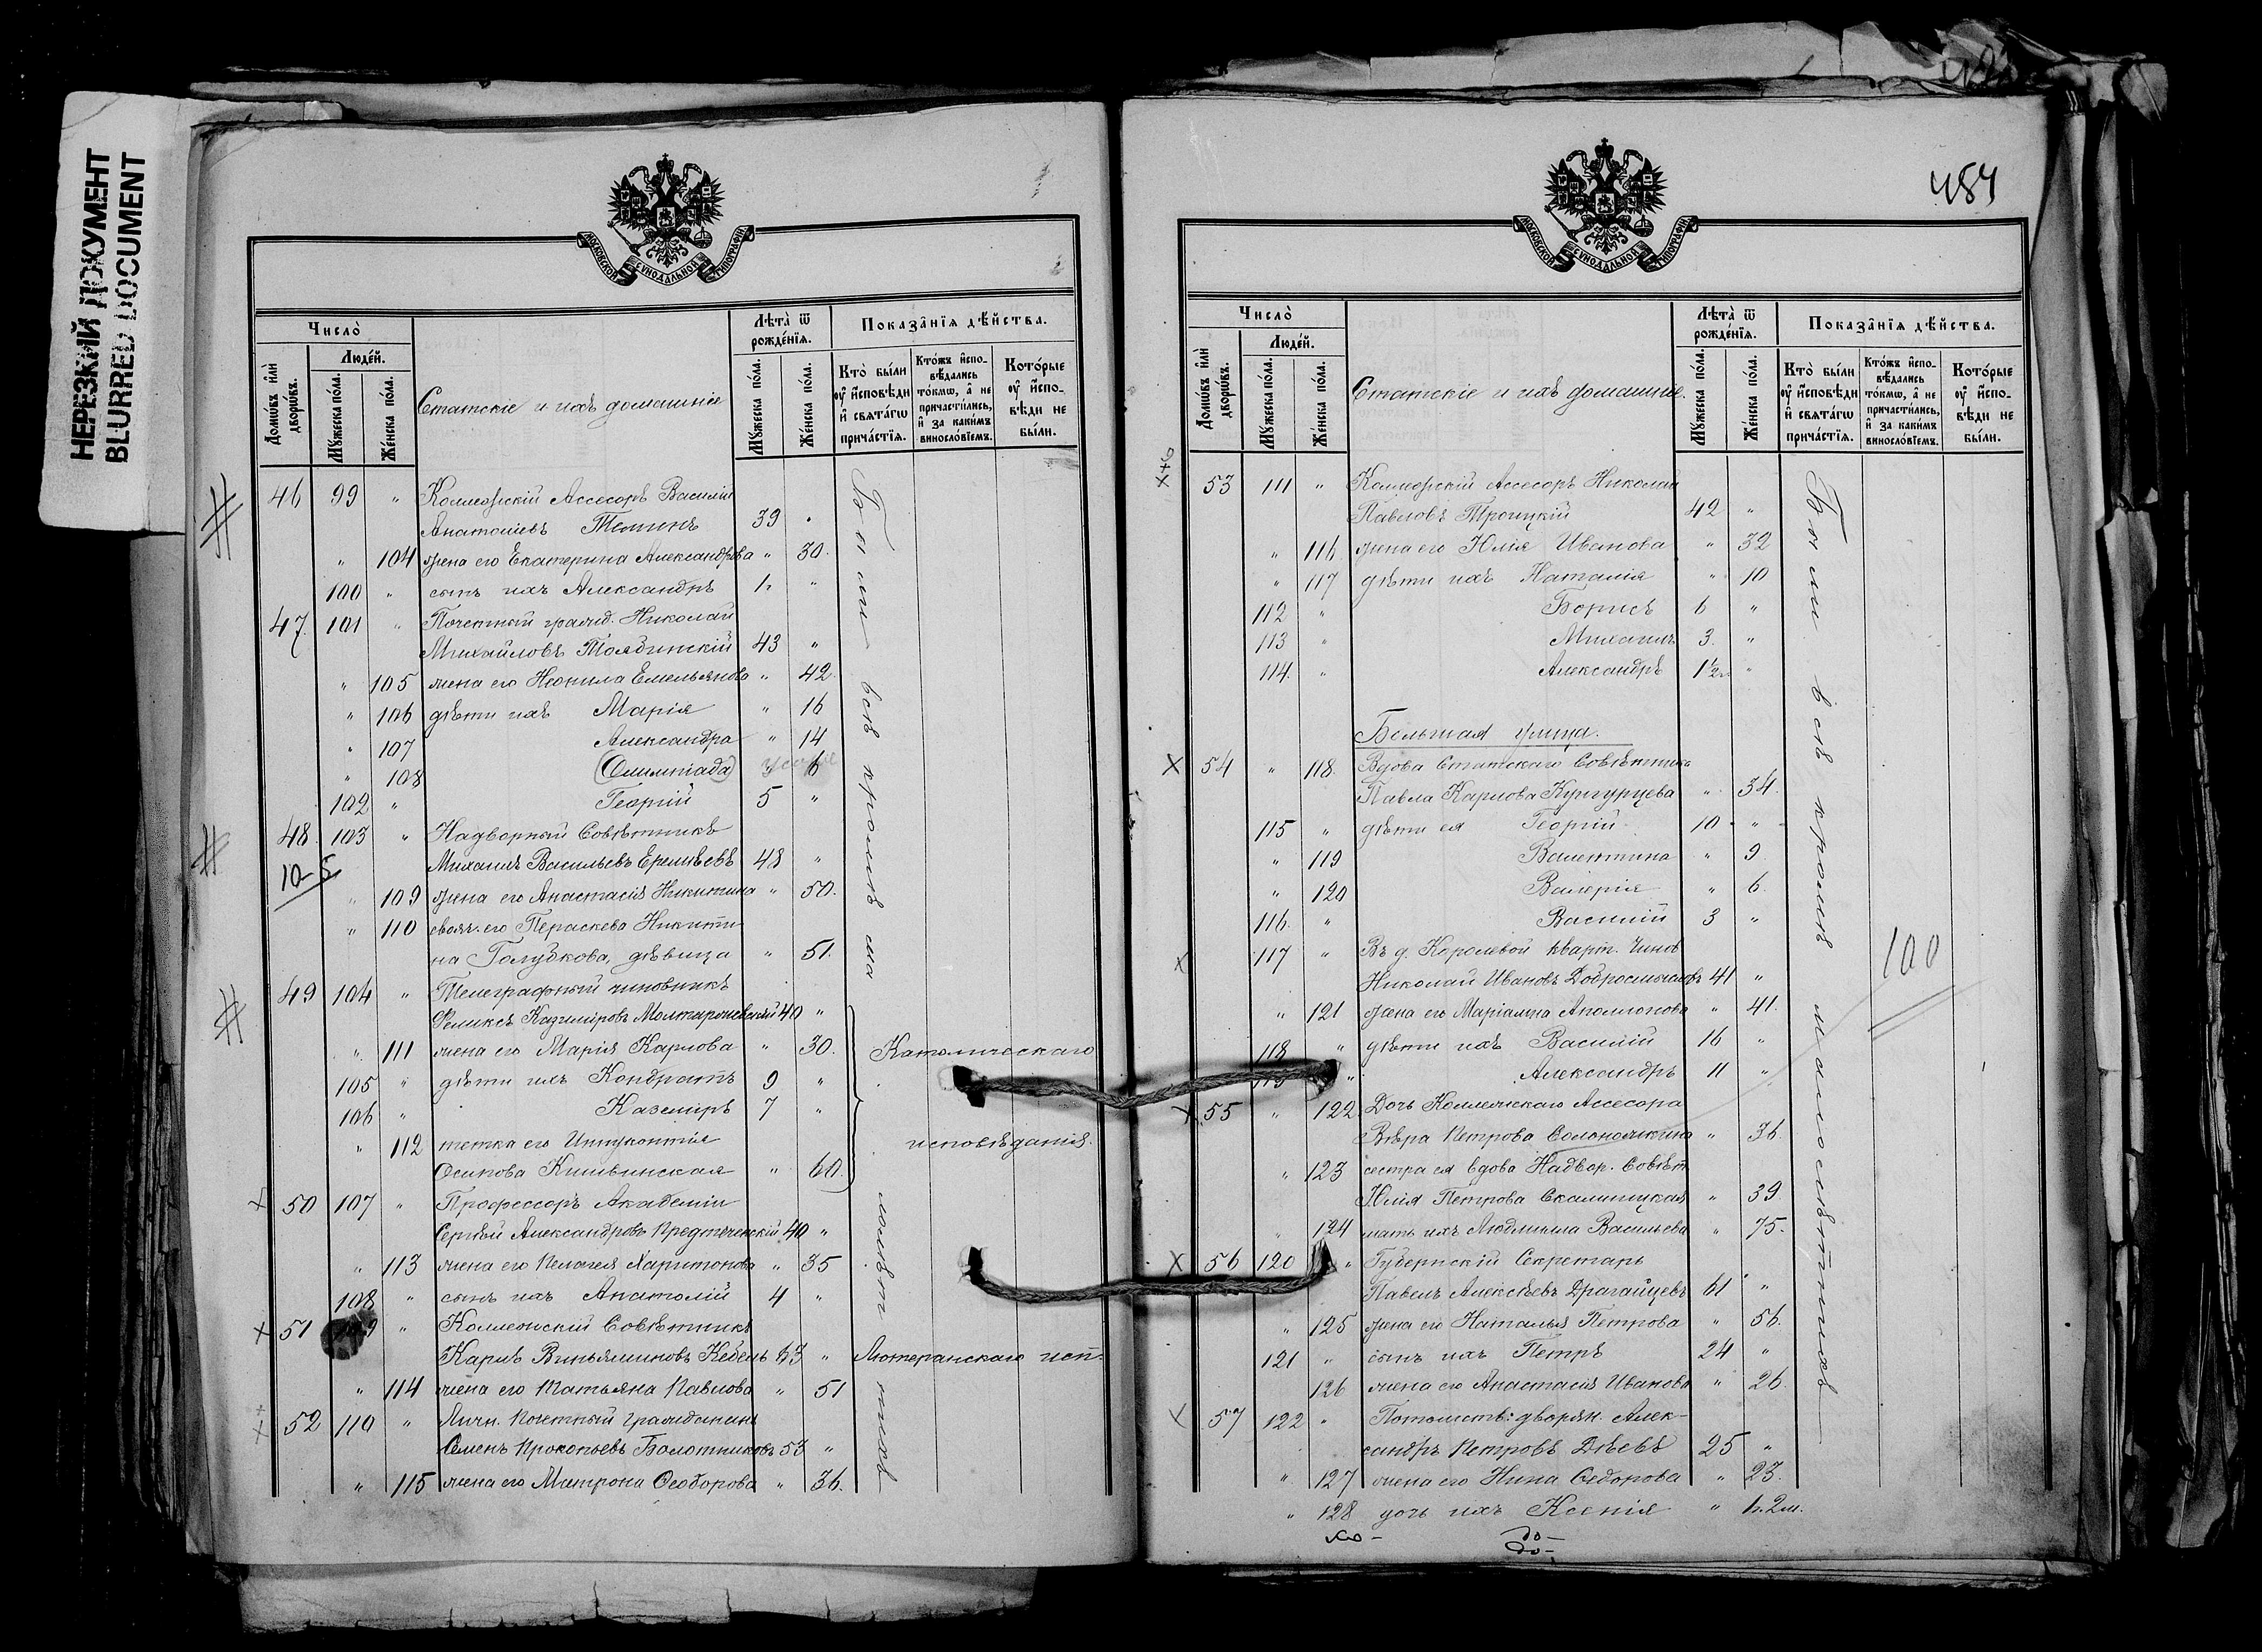 НЕРЕЗКИЙ ДОКУМЕНТ
BLURRED DOCUMENT
МОСКОВСКОЙ СУНОДАЛЬНОЙ ТИПОГРАФІИ
Число̀
Лѣта̀ ѿ рожде́нїѧ.
Показа̑нїѧ дѣ́йства.
Домѡ́въ и҆лѝ дворѡ́въ.
Люде́й.
Мꙋ́жеска по́ла.
Же́нска по́ла.
Статскіе и ихъ домашніе
Мꙋ́жеска по́ла.
Же́нска по́ла.
Кто̀ бы́ли ᲂу҆ и҆сповѣди и҆ свѧта́гѡ прича́стїѧ.
Кто́жъ и҆спо-вѣ́дались то́кмѡ, а҆ не причасти́лись, и҆ за каки́мъ винослов́їемъ.
Кото́рые ᲂу҆ и҆спо-вѣди не бы́ли.
46 99 " Коллежскій Ассесоръ Василій
Анатоліевъ Теминъ 39 "
" 104 жена его Екатерина Александрова " 30.
100 " сынъ ихъ Александръ 1 "
47. 101 " Почетный гражд. Николай
Михайловъ 43 "
" 105 жена его Неонила Емельянова " 42.
" 106 дѣти ихъ Марія " 16
" 107 Александра " 14
" 108 (Олимпіада) " 6
102 " Георгій 5 "
48. 103 " Надворный Совѣтникъ
Михаилъ Васильевъ Еремѣевъ 48 "
" 109 жена его Анастасія Никитина " 50.
" 110 своях. его Параскева Никити-
на Голубкова, дѣвица " 51.
49 104 " Телеграфный чиновникъ
Феликсъ Казимировъ 40 "
" 111 жена его Марія Карлова " 30.
Католическаго
105 " дѣти ихъ Кондратъ 9 "
106 " Казиміръ 7 "
" 112 тетка его
исповѣданія.
Осипова " 60.
50 107 " Профессоръ Академіи
Сергѣй Александровъ Предтеченскій 40 "
" 113 жена его Пелагея Харитонова " 35
108 " сынъ ихъ Анатолій 4 "
51 " Коллежскій Совѣтникъ
Карлъ Виньяминовъ Кебель 63 " Лютеранскаго исп.
" 114 жена его Татьяна Павлова " 51
52 110 " Личн. Почетный Гражданинъ
Семенъ Прокопьевъ Болотниковъ 53 "
" 115 жена его Матрона Ѳеодорова " 36.
Были всѣ кромѣ малолѣтнихъ
484
МОСКОВСКОЙ СУНОДАЛЬНОЙ ТИПОГРАФІИ
Число̀
Лѣта̀ ѿ рожде́нїѧ.
Показа̑нїѧ дѣ́йства.
Домѡ́въ и҆лѝ дворѡ́въ.
Люде́й.
Мꙋ́жеска по́ла.
Же́нска по́ла.
Статскіе и ихъ домашніе.
Мꙋ́жеска по́ла.
Же́нска по́ла.
Кто̀ бы́ли ᲂу҆ и҆сповѣди и҆ свѧта́гѡ прича́стїѧ.
Кто́жъ и҆спо-вѣ́дались то́кмѡ, а҆ не причасти́лись, и҆ за каки́мъ винослов́їемъ.
Кото́рые ᲂу҆ и҆спо-вѣди не бы́ли.
53 111 " Коллежскій Ассесоръ Николай
Павловъ Троицкій 42 "
" 116 жена его Юлія Иванова " 32
" 117 дѣти ихъ Наталія " 10
112 " Борисъ 6 "
113 " Михаилъ 3. "
114. " Александръ 1½ "
Большая улица.
54 " 118. Вдова Статскаго Совѣтника
Павла Карлова Кунгурцева " 34.
115 " дѣти ея Георгій 10 "
" 119 Валентина " 9
" 120 Валерія " 6.
116. " Василій 3 "
117 " Въ д. Королевой кварт. Чинов
Николай Ивановъ Добросмысловъ 41 "
" 121 жена его Маріамна Аполлонова " 41.
118 " дѣти ихъ Василій 16 "
119 " Александръ 11 "
55 " 122 Дочь Коллежскаго Ассесора
Вѣра Петрова " 36.
" 123 сестра ея вдова Надвор. Совѣт.
Юлія Петрова Скалницкая " 39.
" 124 мать ихъ Людмила Васильева " 75.
56 120 " Губернскій Секретарь
Павелъ Алексѣевъ Драгайцевъ 61 "
" 125 жена его Наталья Петрова " 56.
121 " сынъ ихъ Петръ 24 "
126 жена его Анастасія Иванова " 26.
57 122 " Потомств: дворян. Алек-
сандръ Петровъ Дѣевъ 25 "
" 127 жена его Нина Ѳедорова " 23.
" 128 дочь ихъ Ксенія " 1г. 2м.
Были всѣ кромѣ малолѣтнихъ
100